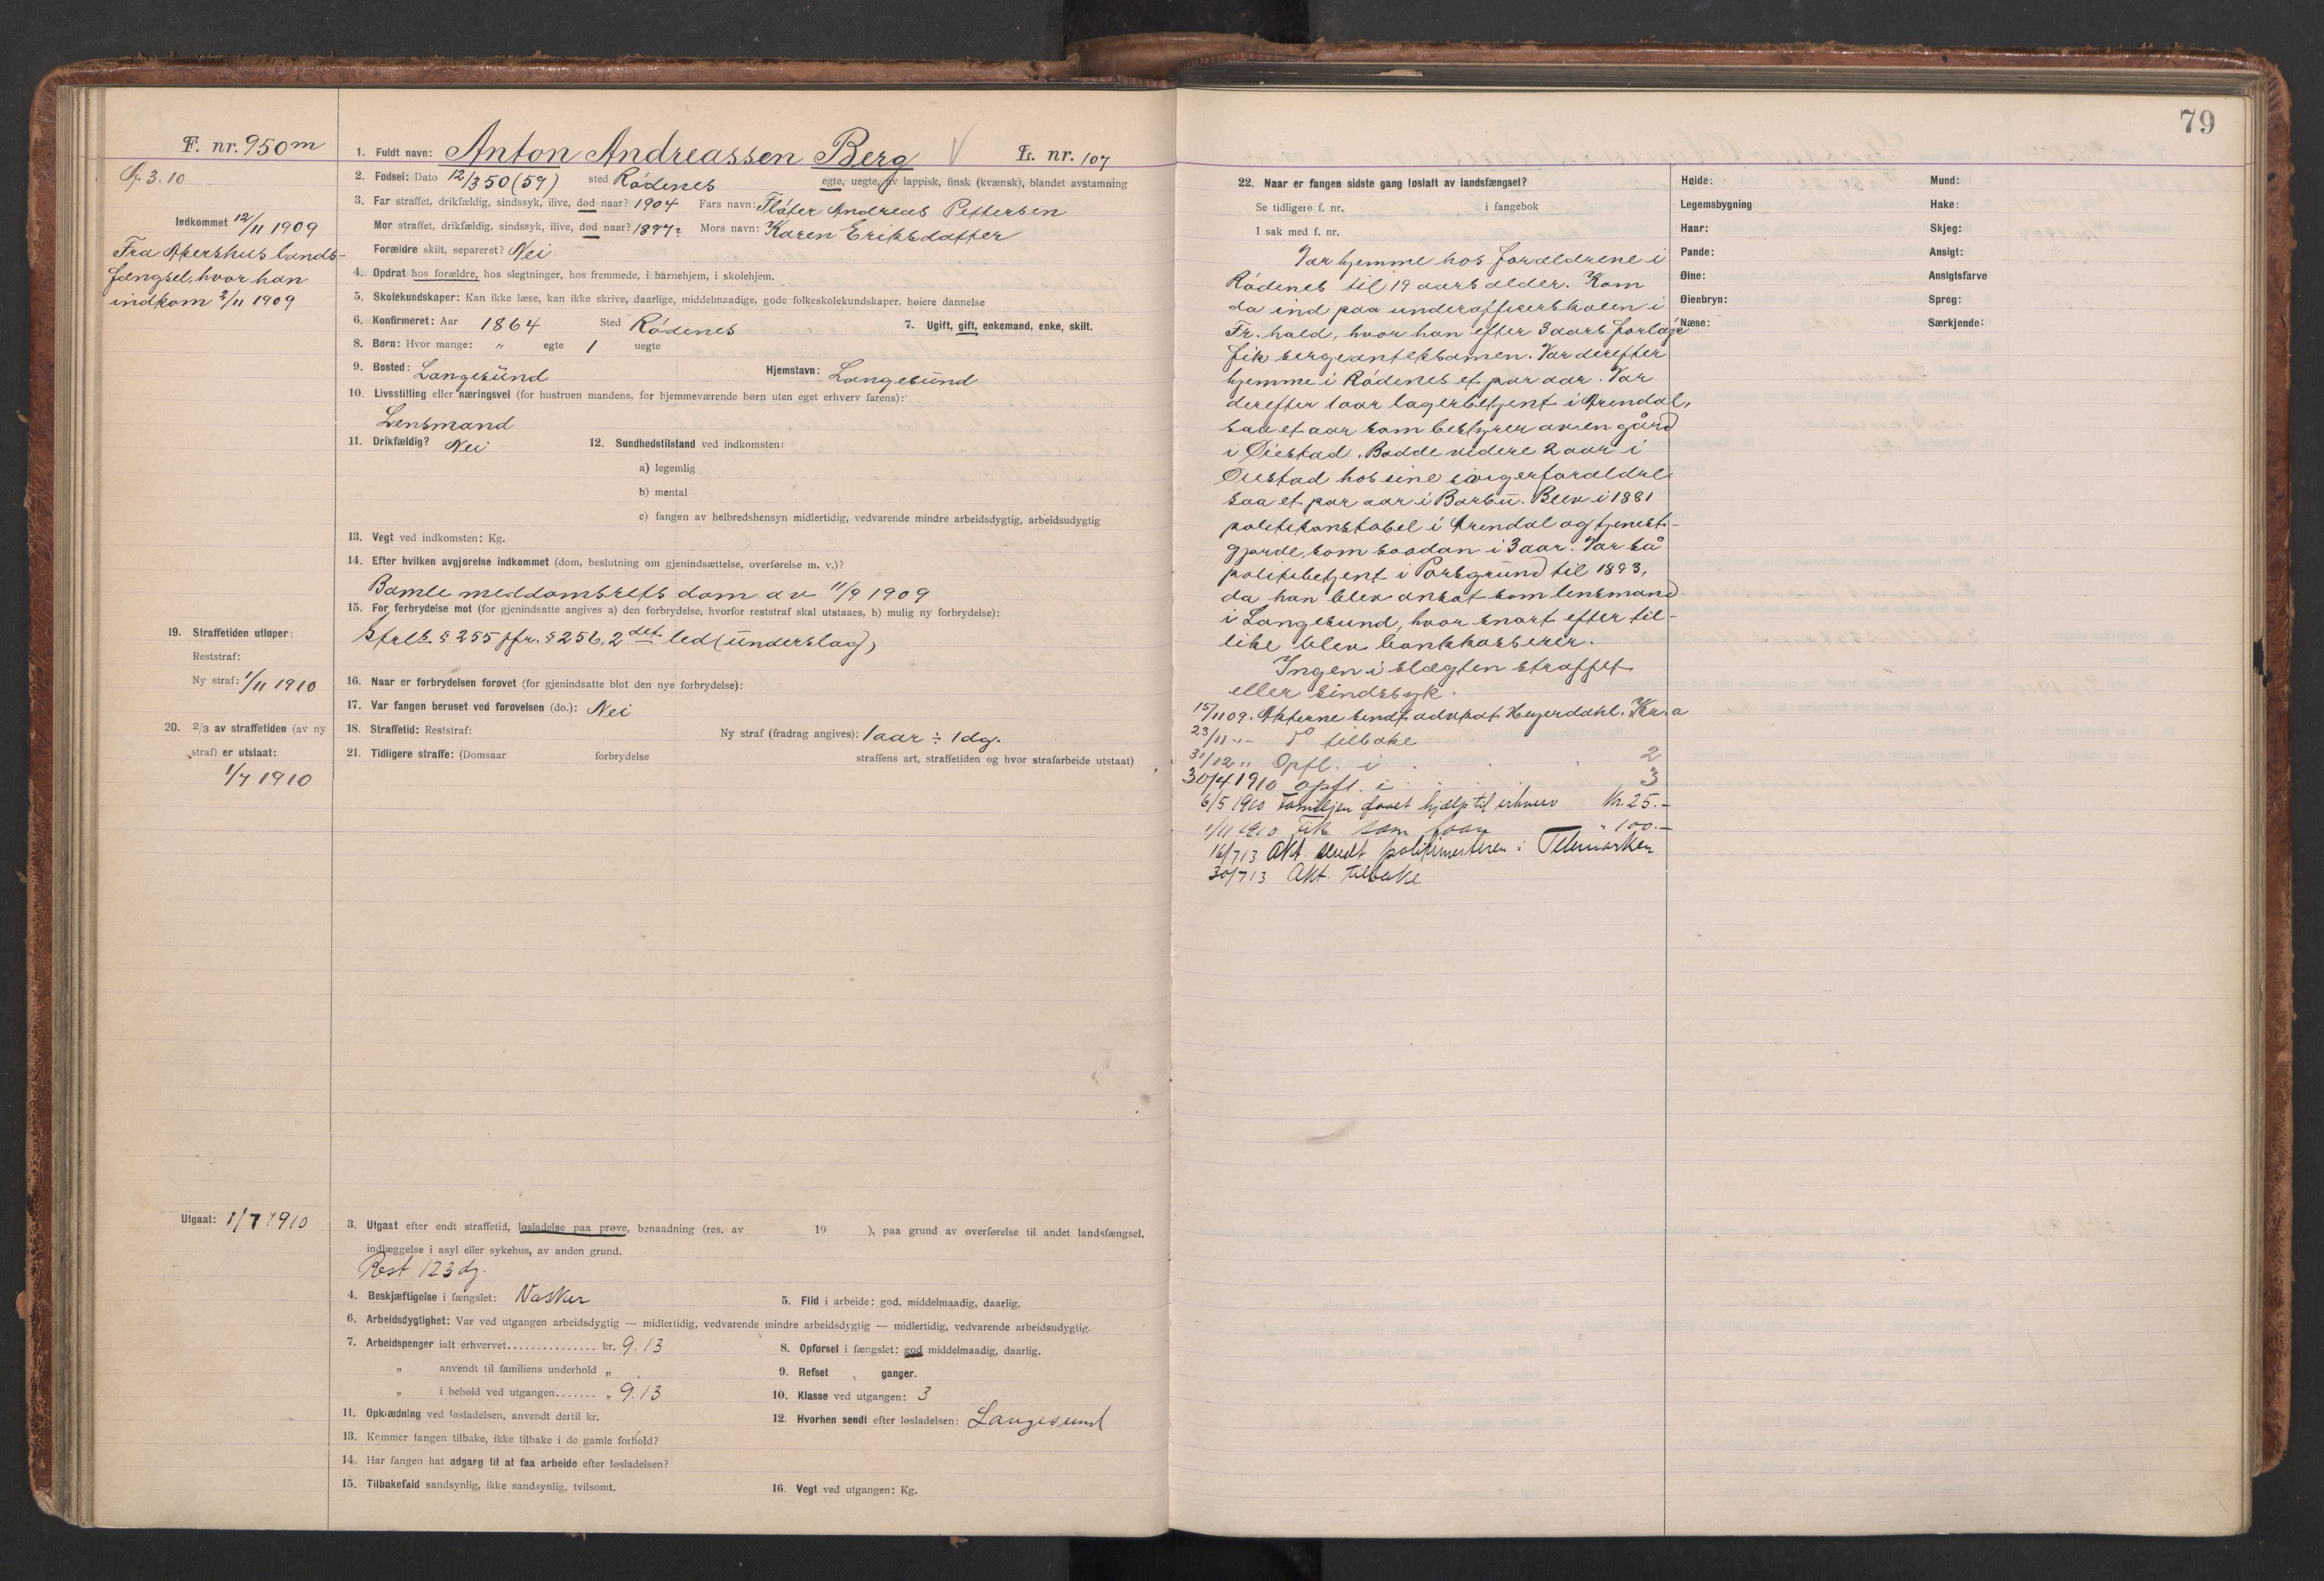 F. nr. 950 m
3.10
Indkommet 12/11 1909
Fra Akershus lands-
fængsel, hvor han
indkom 2/11 1909
19. Straffetiden utløper:
Reststraf:
Ny straf: 1/11 1910
20. 2/3 av straffetiden (av ny
straf) er utstaat:
1/7 1910
Utgaat: 1/7 1910
1. Fuldt navn: Anton Andreassen Berg V L. nr. 107
2. Fødsel: Dato 12/3 50 (59) sted Rødenes egte, uegte, av lappisk, finsk (kvænsk), blandet avstamning
3. Far straffet, drikfældig, sindssyk, ilive, død naar? 1904 Fars navn: Fløter Andreas Pettersen
Mor straffet, drikfældig, sindssyk, ilive, død naar? 1897? Mors navn: Karen Eriksdatter
Forældre skilt, separeret? Nei
4. Opdrat hos forældre, hos slegtninger, hos fremmede, i barnehjem, i skolehjem.
5. Skolekundskaper: Kan ikke læse, kan ikke skrive, daarlige, middelmaadige, gode folkeskolekundskaper, høiere dannelse
6. Konfirmeret: Aar 1864 Sted Rødenes 7. Ugift, gift, enkemand, enke, skilt.
8. Børn: Hvor mange: " egte 1 uegte
9. Bosted: Langesund Hjemstavn: Langesund
10. Livsstilling eller næringsvei (for hustruen mandens, for hjemmeværende børn uten eget erhverv farens):
Lensmand
11. Drikfældig? Nei 12. Sundhedstilstand ved indkomsten:
a) legemlig
b) mental
c) fangen av helbredshensyn midlertidig, vedvarende mindre arbeidsdygtig, arbeidsudygtig
13. Vegt ved indkomsten: Kg.
14. Efter hvilken avgjørelse indkommet (dom, beslutning om gjenindsættelse, overførelse m. v.)?
Bamle meddomsrets dom av 11/9 1909
15. For forbrydelse mot (for gjenindsatte angives a) den forbrydelse, hvorfor reststraf skal utstaaes, b) mulig ny forbrydelse):
Strls. § 255 jfr. § 256, 2det led (underslag)
16. Naar er forbrydelsen forøvet (for gjenindsatte blot den nye forbrydelse):
17. Var fangen beruset ved forøvelsen (do.): Nei
18. Straffetid: Reststraf: Ny straf (fradrag angives): 1 aar ÷ 1 dg.
21. Tidligere straffe: (Domsaar forbrydelse straffens art, straffetiden og hvor strafarbeide utstaat)
3. Utgaat efter endt straffetid, løsladelse paa prøve, benaadning (res. av 19 ), paa grund av overførelse til andet landsfængsel,
indlæggelse i asyl eller sykehus, av anden grund.
Rest 123 dg.
4. Beskjæftigelse i fængslet: Vasker 5. Flid i arbeide: god, middelmaadig, daarlig.
6. Arbeidsdygtighet: Var ved utgangen arbeidsdygtig — midlertidig, vedvarende mindre arbeidsdygtig — midlertidig, vedvarende arbeidsudygtig.
7. Arbeidspenger ialt erhvervet............... kr. 9.13 8. Opførsel i fængslet: god middelmaadig, daarlig.
" anvendt til familiens underhold " 9. Refset ganger.
" i behold ved utgangen....... " 9.13 10. Klasse ved utgangen: 3
11. Opklædning ved løsladelsen, anvendt dertil kr. 12. Hvorhen sendt efter løsladelsen: Langesund
13. Kommer fangen tilbake, ikke tilbake i de gamle forhold?
14. Har fangen hat adgang til at faa arbeide efter løsladelsen?
15. Tilbakefald sandsynlig, ikke sandsynlig, tvilsomt. 16. Vegt ved utgangen: Kg.
79
22. Naar er fangen sidste gang løslatt av landsfængsel?
Se tidligere f. nr. i fangebok
I sak med f. nr.
Var hjemme hos forældrene i
Rødenes til 19 aars alder. Kom
da ind paa underofficersskolen i
Fr.hald, hvor han efter 3 aars forløp
fik sergeanteksamen. Var derefter
hjemme i Rødenes et par aar. Var
derefter 1 aar lagerbetjent i Arendal,
saa et aar som bestyrer av en gård
i Øiestad. Bodde videre 2 aar i
Øiestad hos sine svigerforældre
saa et par aar i Barbu. Blev i 1881
politikonstabel i Arendal og tjenest-
gjorde som saadan i 3 aar. Var så
politibetjent i Porsgrund til 1893,
da han blev ansat som lensmand
i Langesund, hvor snart efter til-
like blev bankkasserer.
Ingen i slægten straffet
eller sindssyk.
15/11 09. Akterne sendt advokat Heyerdahl. Kr.a
23/11 " - do tilbake
31/12 " Opfl. i 2
30/4 1910 opfl. i 3
6/5 1910 Familjen faaet hjælp til erhverv Kr. 25.-
1/11 1910 fik som " 100.-
16/7 13 Akt. sendt politimesteren i Telemarken
30/7 13 Akt. tilbake
Høide: Mund:
Legemsbygning Hake:
Haar: Skjeg:
Pande: Ansigt:
Øine: Ansigtsfarve
Øienbryn: Sprog:
Næse: Særkjende: